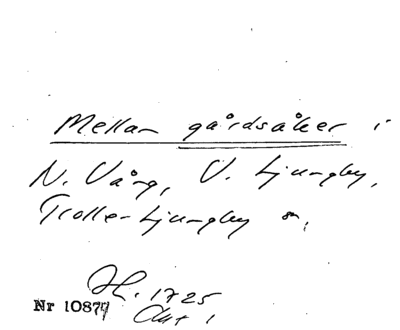 Mellan gårdsåker i
N. Vång, V. Ljungby,
Trolle-Ljungby sn,
H. 1725
Akt 1
Nr 10877